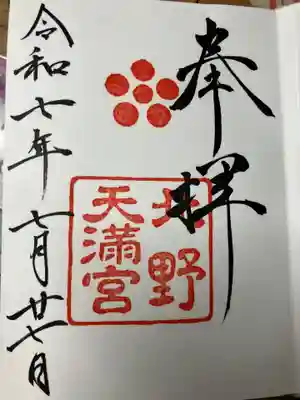 奉拝
北野
天満宮
令和七年七月廿七日